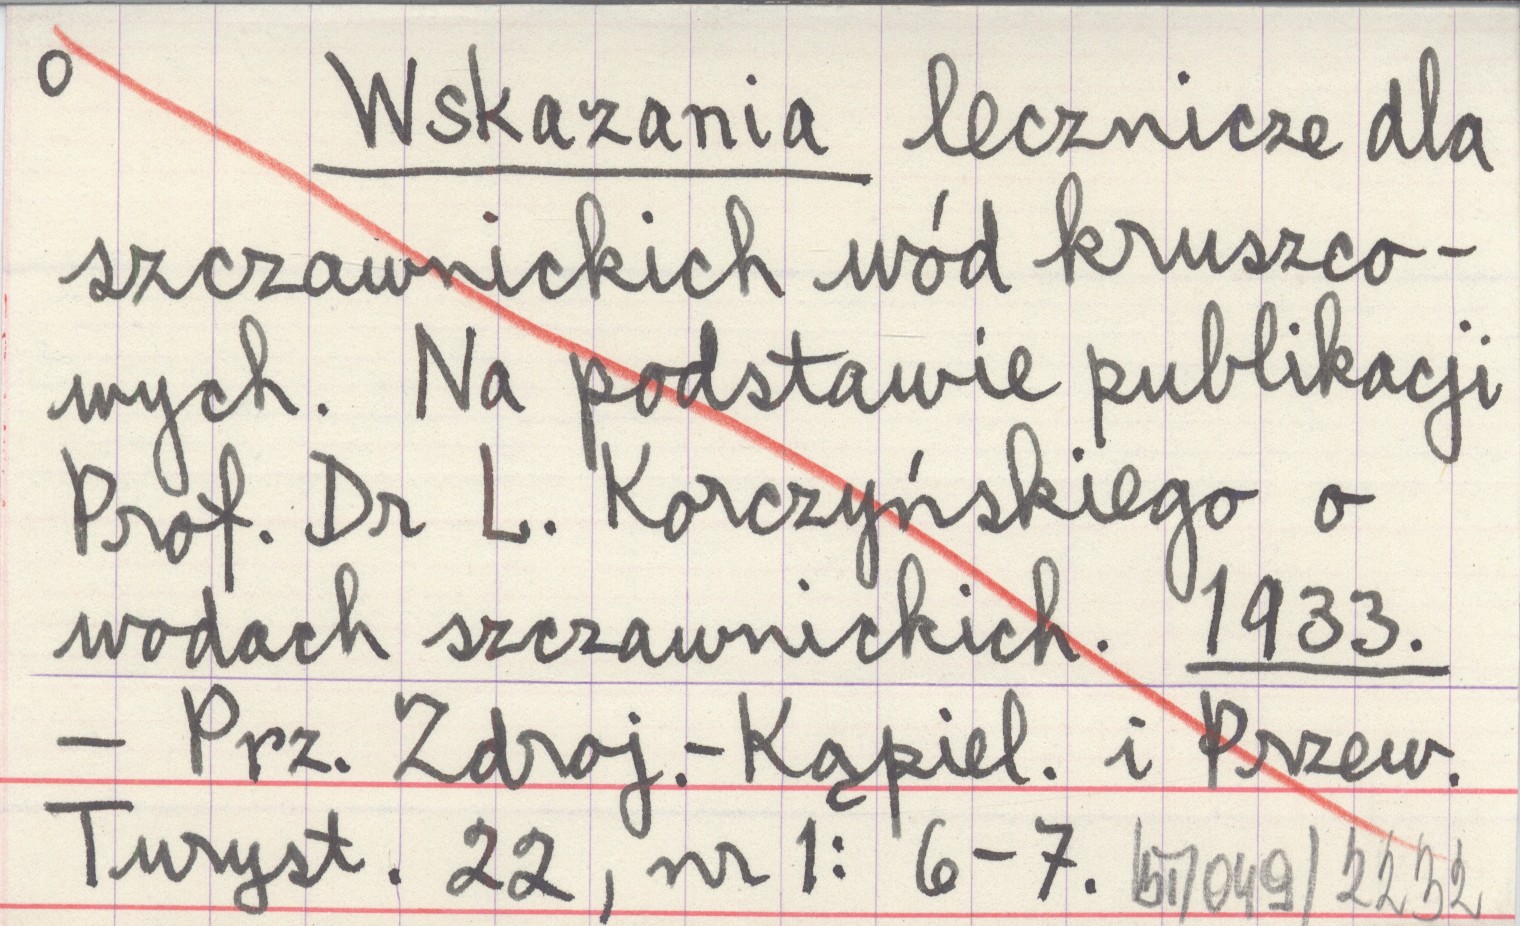 o Wskazania lecznicze dla
szczawnickich wód kruszco-
wych. Na podstawie publikacji
Prof. Dr L. Korczyńskiego o
wodach szczawnickich. 1933.
- Prz. Zdroj.-Kąpiel. i Przew.
Turyst. 22, nr 1: 6-7. /2232